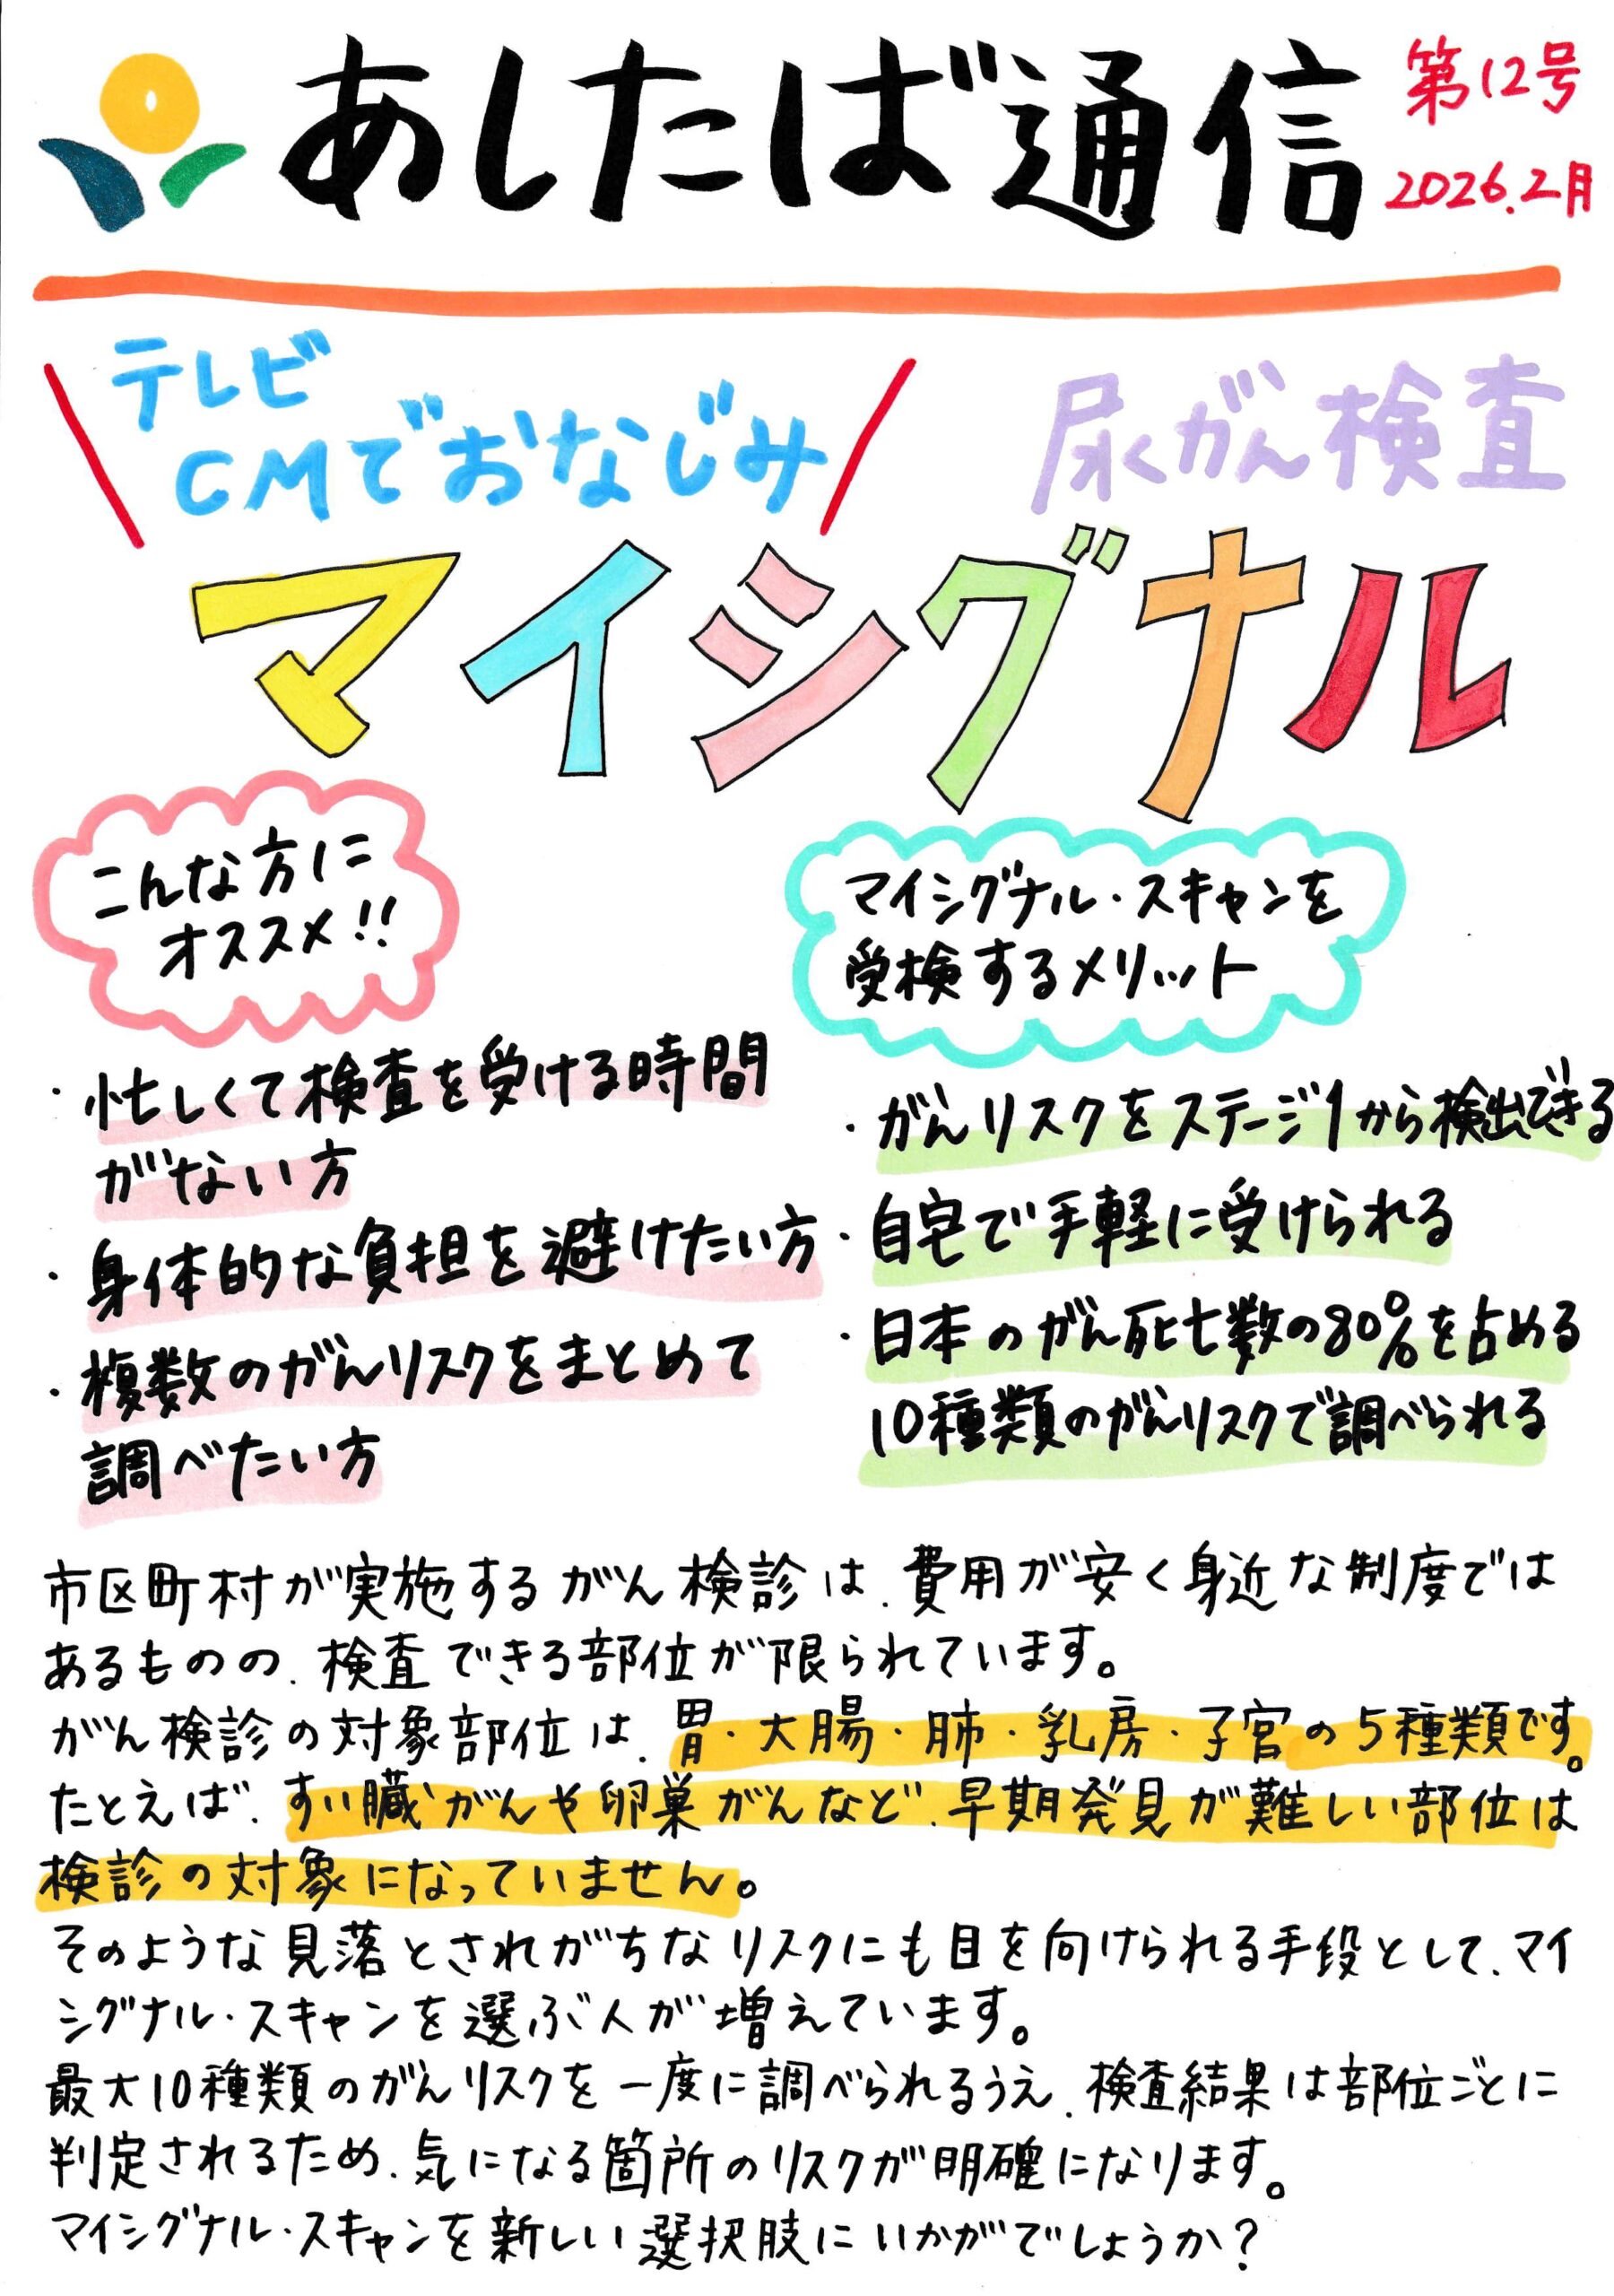 あしたば通信
第12号
2026.2月
テレビ
CMでおなじみ
尿がん検査
マイシグナル
こんな方に
オススメ!!
・忙しくて検査を受ける時間
がない方
・身体的な負担を避けたい方
・複数のがんリスクをまとめて
調べたい方
マイシグナル・スキャンを
受検するメリット
・がんリスクをステージ1から検出できる
・自宅で手軽に受けられる
・日本のがん死亡数の80%を占める
10種類のがんリスクで調べられる
市区町村が実施するがん検診は、費用が安く身近な制度では
あるものの、検査できる部位が限られています。
がん検診の対象部位は、胃・大腸・肺・乳房・子宮の5種類です。
たとえば、すい臓がんや卵巣がんなど、早期発見が難しい部位は
検診の対象になっていません。
そのような見落とされがちなリスクにも目を向けられる手段として、マイ
シグナル・スキャンを選ぶ人が増えています。
最大10種類のがんリスクを一度に調べられるうえ、検査結果は部位ごとに
判定されるため、気になる箇所のリスクが明確になります。
マイシグナル・スキャンを新しい選択肢にいかがでしょうか?